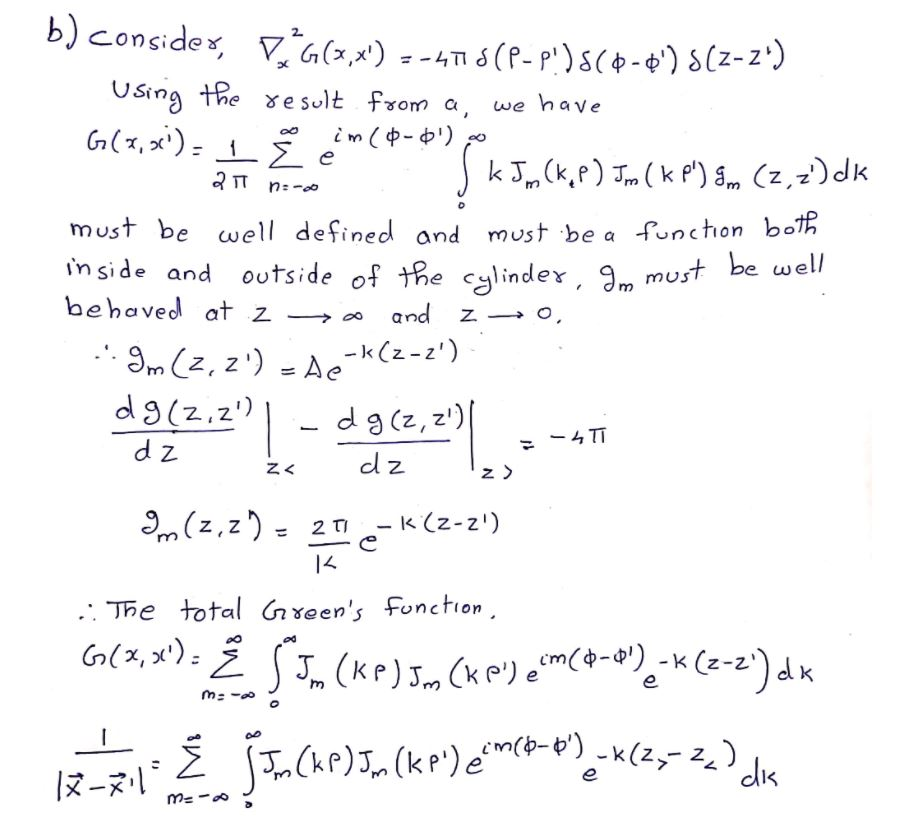 b) consider, ∇ₓ²G(x,x') = -4π δ(ρ-ρ')δ(φ-φ') δ(z-z')
Using the result from a, we have
G(x,x') = 1/2π ∑_{n=-∞}^{∞} e^{im(φ-φ')} ∫_0^∞ k J_m(k,ρ) J_m(kρ') g_m (z,z')dk
must be well defined and must be a function both
inside and outside of the cylinder, g_m must be well
behaved at z → ∞ and z → 0.
∴ g_m(z,z') = Ae^{-k(z-z')}
dg(z,z')/dz |_{z<} - dg(z,z')/dz |_{z>} = -4π
g_m(z,z') = 2π/k e^{-k(z-z')}
∴ The total Green's function,
G(x,x') = ∑_{m=-∞}^{∞} ∫_0^∞ J_m(kρ) J_m(kρ') e^{im(φ-φ')} e^{-k(z-z')} dk
1/|x⃗-x⃗'| = ∑_{m=-∞}^{∞} ∫_0^∞ J_m(kρ) J_m(kρ') e^{im(φ-φ')} e^{-k(z_>-z_<)} dk